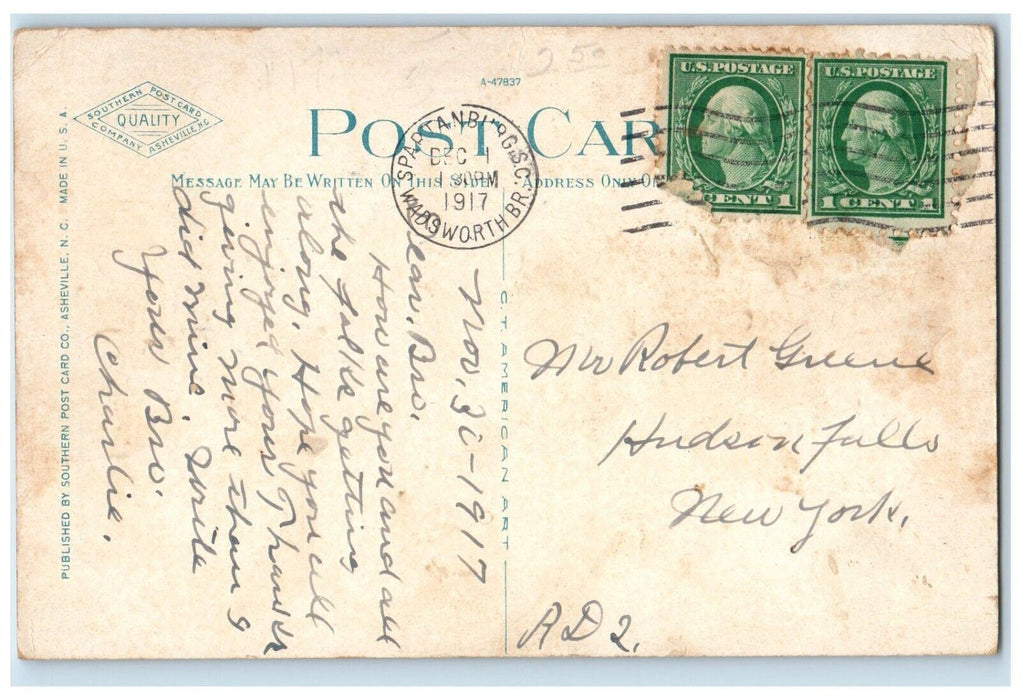 2.50
A-47837
SOUTHERN POST CARD
QUALITY
COMPANY ASHEVILLE, N.C.
POST CAR
MESSAGE MAY BE WRITTEN ON THIS SIDE
ADDRESS ONLY O
U.S. POSTAGE
CENT 1
U.S. POSTAGE
1 CENT 1
SPARTANBURG, S.C.
DEC 1
1 30PM
1917
WADSWORTH BR.
PUBLISHED BY SOUTHERN POST CARD CO., ASHEVILLE, N. C. MADE IN U. S. A.
C. T. AMERICAN ART
Nov, 30-1917
Dear, Bro.
How are you and all
the folks getting
along. Hope you all
enjoyed your Thanks
giving more than I
did mine. write
Your Bro.
Charlie.
Mr Robert Greene
Hudson Falls
New York.
RD 2.